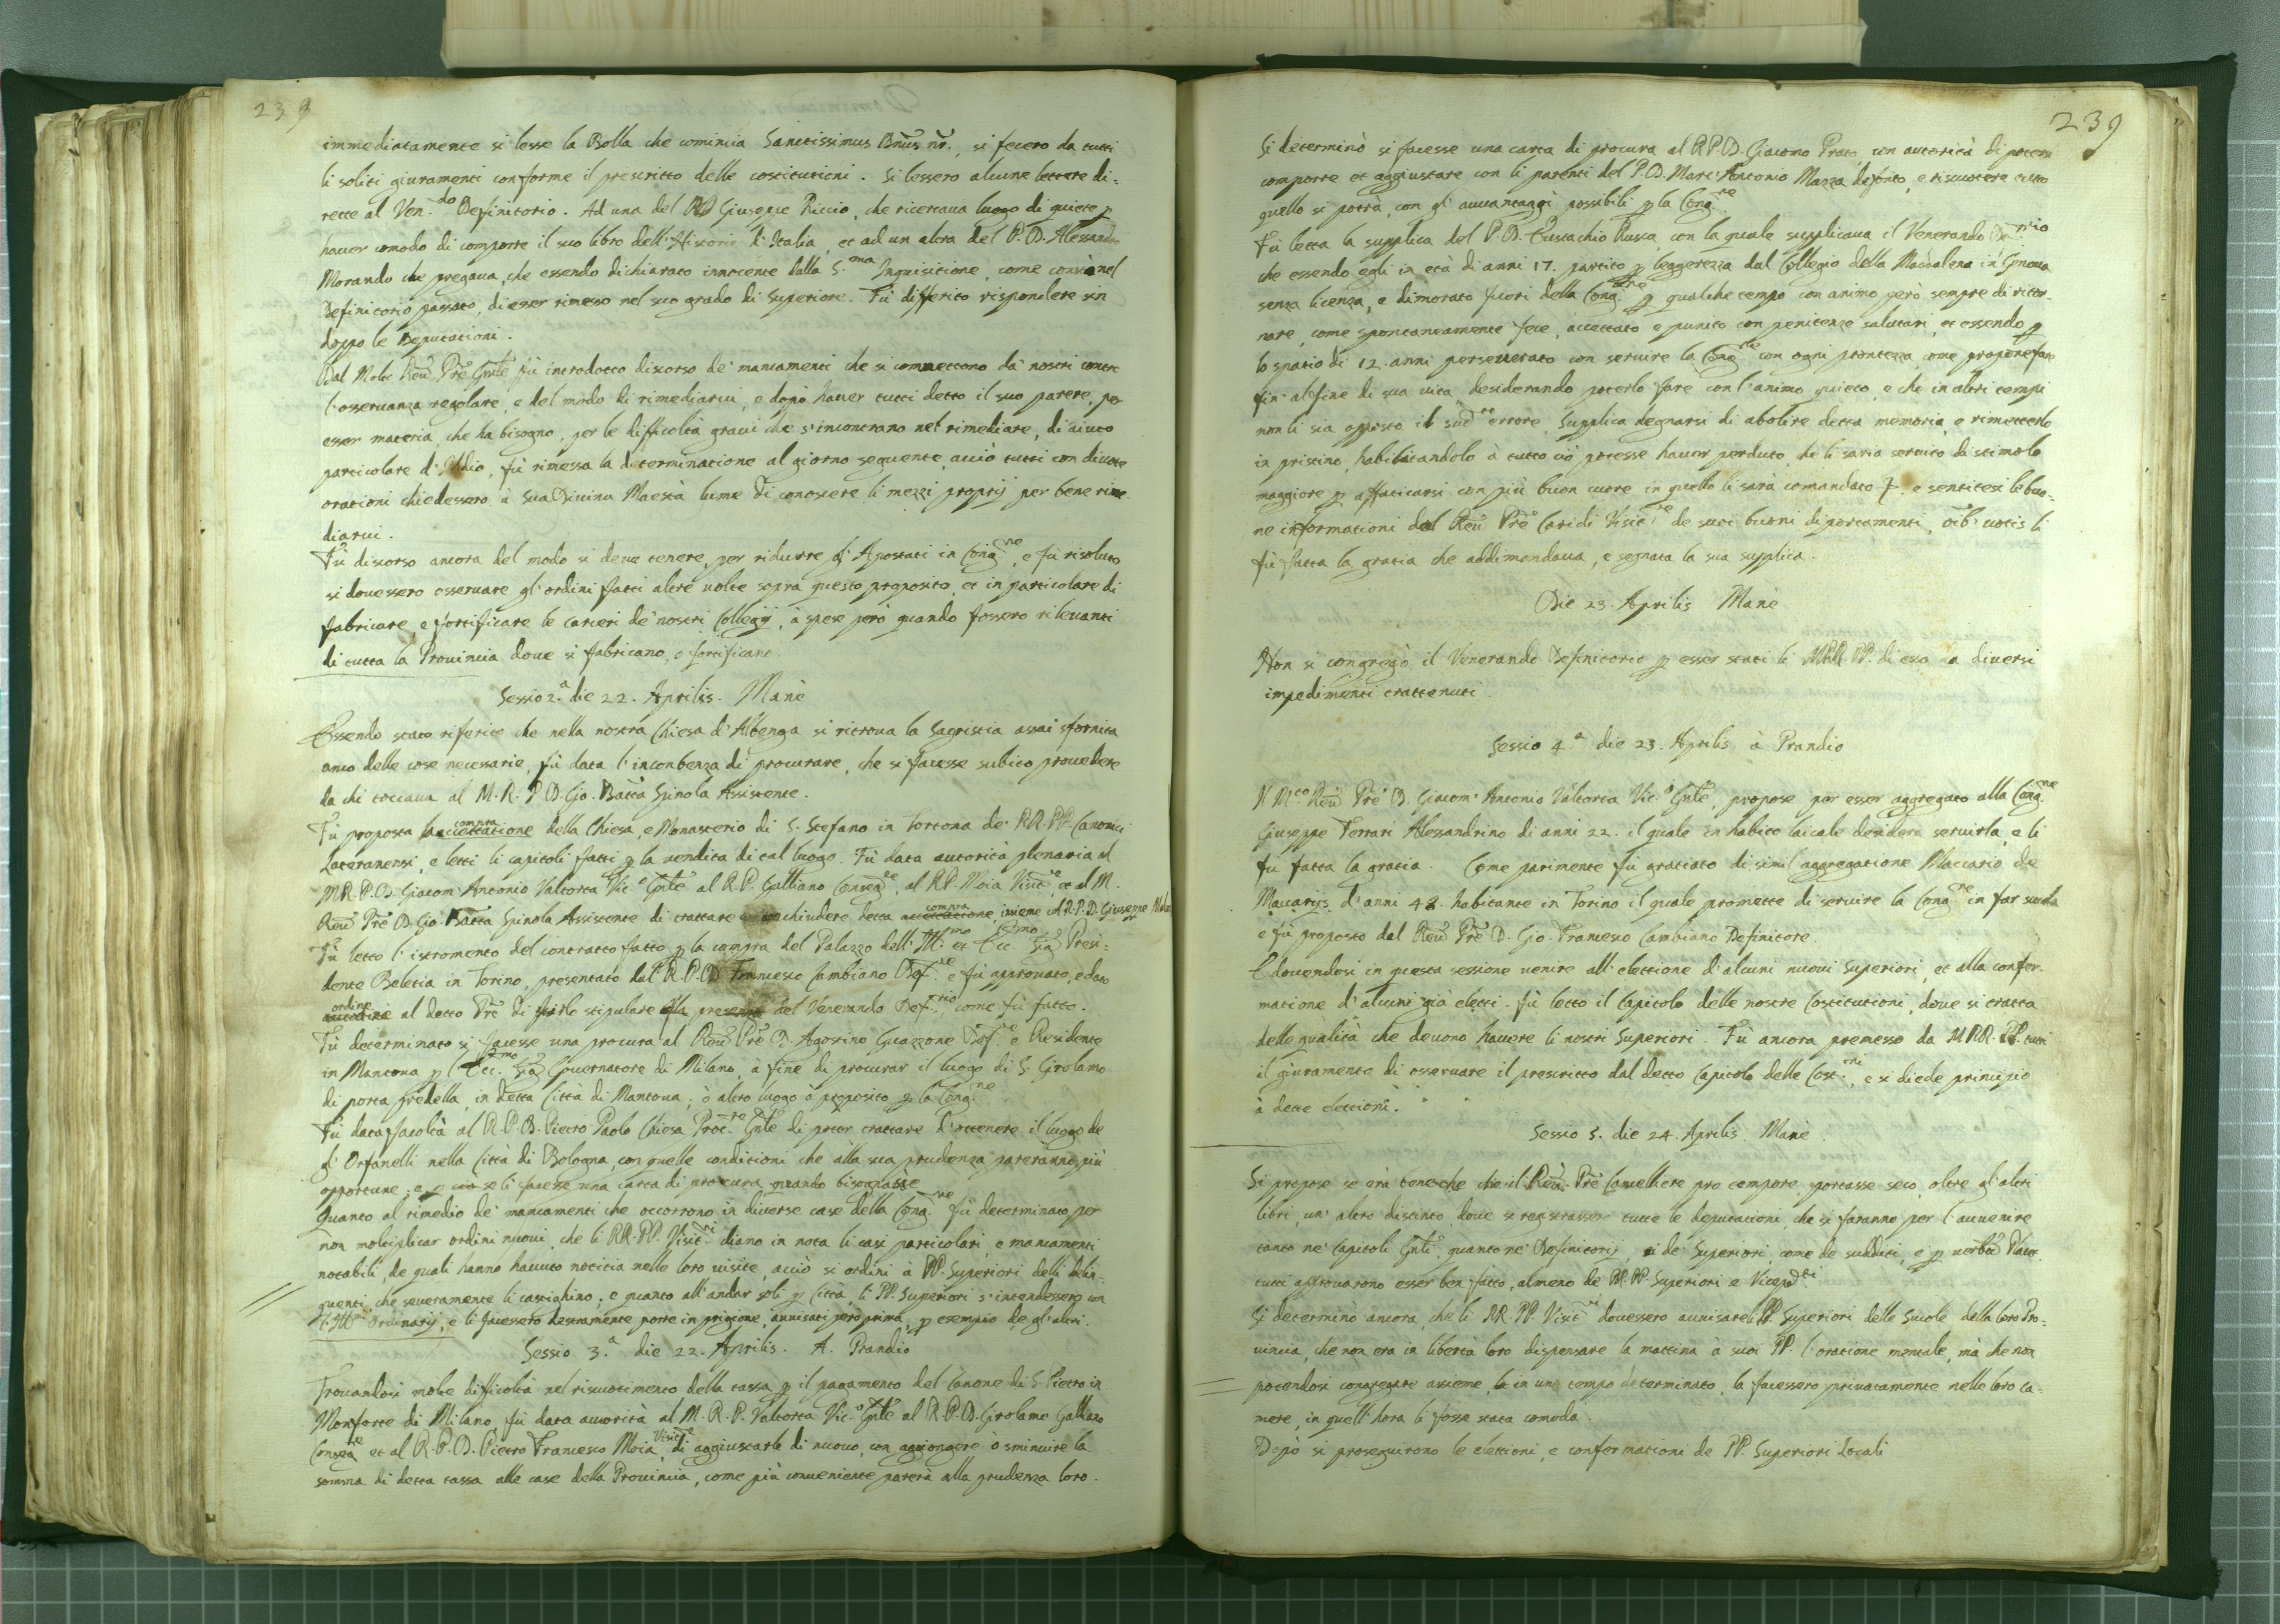 239
immediatamente si lesse la Bolla che comincia Sanctissimus Dnus nr., si fecero da tutti
li soliti giuramenti conforme il prescritto delle costitutioni. Si lessero alcune lettere di-
rette al Ven.do Definitorio. Ad una del PD Giuseppe Riccio, che ricercaua luogo di quiete p
hauer comodo di comporre il suo libro dell'Historie d'Italia, et ad un altra del P. D. Alessandro
Morando che pregaua, che essendo dichiarato innocente dalla S.ma Inquisitione, come constò nel
Definitorio passato, di esser rimesso nel suo grado di Superiore. Fù differito rispondere sin
doppo le Deputationi.
Dal Molto Reu Pre Gnle fù introdotto discorso de' mancamenti che si commettono da' nostri contro
l'osseruanza regolare, e del modo di rimediarui, e dopò hauer tutti detto il suo parere, per
esser materia, che ha bisogno, per le difficoltà graui che s'incontrano nel rimediare, di aiuto
particolare d'Iddio, fù rimessa la determinatione al giorno seguente, acciò tutti con diuote
orationi chiedessero à Sua Diuina Maestà lume di conoscere li mezzi proprij per bene rime
diarui.
Fù discorso ancora del modo si deue tenere, per ridurre gl'Apostati in Cong.ne, e fù risoluto
si douessero osseruare gl'ordini fatti altre uolte sopra questo proposito, et in particolare di
fabricare, e fortificare le carceri de' nostri Collegij, à spese però quando fossero rileuanti
di tutta la Prouincia doue si fabricano, o fortificano.
Sessio 2.a die 22. Aprilis. Manè
Essendo stato riferito che nella nostra Chiesa d'Albenga si ritroua la Sagristia assai sfornita
anco delle cose necessarie, fù data l'incombenza di procurare, che si facesse subito prouedere
da chi toccaua al M. R. P. D. Gio. Batta Spinola Assistente.
compra
Fù proposta la accettatione della Chiesa, e Monasterio di S. Stefano in Tortona de' RR. PP. Canonici
Lateranensi, e letti li capitoli fatti p la uendita di tal luogo. Fù data autorità plenaria al
M.R.P.D. Giacom'Antonio Valtorta Vic.o Gnle al R.P. Galliano Conseg.re, al R.P. Moia Visit.re et al M.
Reu Pre D. Gio. Batta Spinola Assistente di trattare conchiudere detta accettatione compra, insieme col R.P.D. Giuseppe
Fù letto l'istromento del contratto fatto p la compra del Palazzo dell'Ill.mo et Ecc.mo Sig Presi-
dente Beletia in Torino, presentato dal R.P.D. Francesco Cambiano Def.re e fù approuato, e dato
ordine al detto Pre di farlo stipulare alla presenza del Venerando Def.rio, come fù fatto.
Fù determinato si facesse una procura al Reu Pre D. Agostino Guazzone Def.e e Residente
in Mantoua p l'Ecc.mo Sig Gouernatore di Milano, à fine di procurar il luogo di S. Girolamo
di porta predella, in detta Città di Mantoua, ò altro luogo à proposito p la Cong.ne
Fù data facoltà al R.P.D. Pietro Paolo Chiesa Proc.re Gnle di poter trattare d'ottenere il luogo de
gl'Orfanelli nella Città di Bologna, con quelle conditioni che alla sua prudenza pareranno più
opportune; e se li facesse una carta di procura quando bisognasse
Quanto al rimedio de' mancamenti che occorrono in diuerse case della Cong.ne fù determinato per
non moltiplicar ordini nuoui, che li RR. PP. Visit.ri diano in nota li casi particolari, e mancamenti
notabili, de quali hanno hauuto notitia nelle loro uisite, acciò si ordini à PP. Superiori delli delin-
quenti, che seueramente li castighino, e quanto all'andar soli p Città, li PP. Superiori s'intendessero con
Ordinarij, e li facessero destramente porre in prigione, auuisati però prima, p esempio de gl'altri.
Sessio 3.a die 22. Aprilis. A. Prandio
Trouandosi molte difficoltà nel riscuotimento della tassa p il pagamento del Canone di S. Pietro in
Monforte di Milano fù data autorità al M.R.P. Valtorta Vic.o Gnle al R.P.D. Girolamo Galliano
Conseg.re et al R.P.D. Pietro Francesco Moia Visit.re, di aggiustarle di nuouo, con aggiongere ò sminuire la
somma di detta tassa alle case della Prouincia, come più conueniente parerà alla prudenza loro.
239
Si determinò si facesse una carta di procura al R.P.D. Giacomo Prato, con autorità di potere
comporre et aggiustare con li parenti del P.D. Marc'Antonio Mazza defonto, e riscuotere tutto
quello si potrà, con gl'auuantaggi possibili p la Cong.ne
Fù letta la supplica del P. D. Eustachio Rusca, con la quale supplicaua il Venerando De.rio
che essendo egli in età di anni 17. partito p leggerezza dal Collegio della Madalena in Genoua
senza licenza, e dimorato fuori della Cong.ne p qualche tempo con animo però sempre di ritor-
nare, come spontaneamente fece, accettato e punito con penitenze salutari, et essendo p
lo spatio di 12. anni perseuerato con seruire la Cong.ne con ogni prontezza, come propone fare
fin' al fine di sua uita, desiderando poterlo fare con l'animo quieto, e che in altri tempi
non li sia opposto il sud.to errore, supplica degnarsi di abolire detta memoria, e rimetterlo
in pristino, habilitandolo à tutto ciò potesse hauer perduto, che li saria seruito di stimolo
maggiore p affaticarsi con più buon cuore in quello li sarà comandato, e sentitesi le buo-
ne informationi dal Reu Pre Caridi Visit.re de suoi buoni diportamenti, oib' uotis li
fù fatta la gratia che addimandaua, e segnata la sua supplica.
Die 23. Aprilis Manè
Non si congregò il Venerando Definitorio p esser stati li MRR. PP. di esso da diuersi
impedimenti trattenuti.
Sessio 4.a die 23. Aprilis à Prandio
Il M.to Reu Pre D. Giacom'Antonio Valtorta Vic.o Gnle, propose per esser aggregato alla Cong.ne
Giuseppe Ferrari Alessandrino di anni 22. il quale in habito laicale desidera seruirla, e li
fu fatta la gratia. Come parimente fù gratiato di simil aggregatione Maccario de
Maccarijs d'anni 48 habitante in Torino il quale promette di seruire la Cong.ne in far scuola
e fù proposto dal Reu Pre D. Gio. Francesco Cambiano Definitore.
E douendosi in questa sessione uenire all'elettione d'alcuni nuoui Superiori, et alla confer-
matione d'alcuni già eletti. fù letto il Capitolo delle nostre Costitutioni, doue si tratta
delle qualità che deuono hauere li nostri Superiori. Fù ancora premesso da MRR. PP. tutti
il giuramento di osseruare il prescritto dal detto Capitolo delle Cost.ni, e si diede principio
à dette elettioni.
Sessio 5. die 24. Aprilis Manè.
Si propose se era bene che il Reu Pre Cancelliere pro tempore, portasse seco, oltre gl'altri
libri, un' altro distinto, doue si registrassero tutte le deputationi, che si faranno per l'auuenire
tanto ne' Capitoli Gnli, quanto ne' Definitorij, de' Superiori, come de sudditi, e p uerbu Placet
tutti approuarono esser ben fatto, almeno de RR. PP. Superiori e Vicep.ti
Si determinò ancora, che li RR. PP. Visit.ri douessero auuisare li PP. Superiori delle Scuole della loro Pro-
uincia, che non era in libertà loro dispensare la mattina à suoi PP. l'oratione mentale, mà che non
potendosi congregare assieme, in un tempo determinato, la facessero priuatamente nelle loro ca-
mere, in quell'hora li fosse stata comoda.
Dopò si proseguirono le elettioni, e confermationi de PP. Superiori Locali